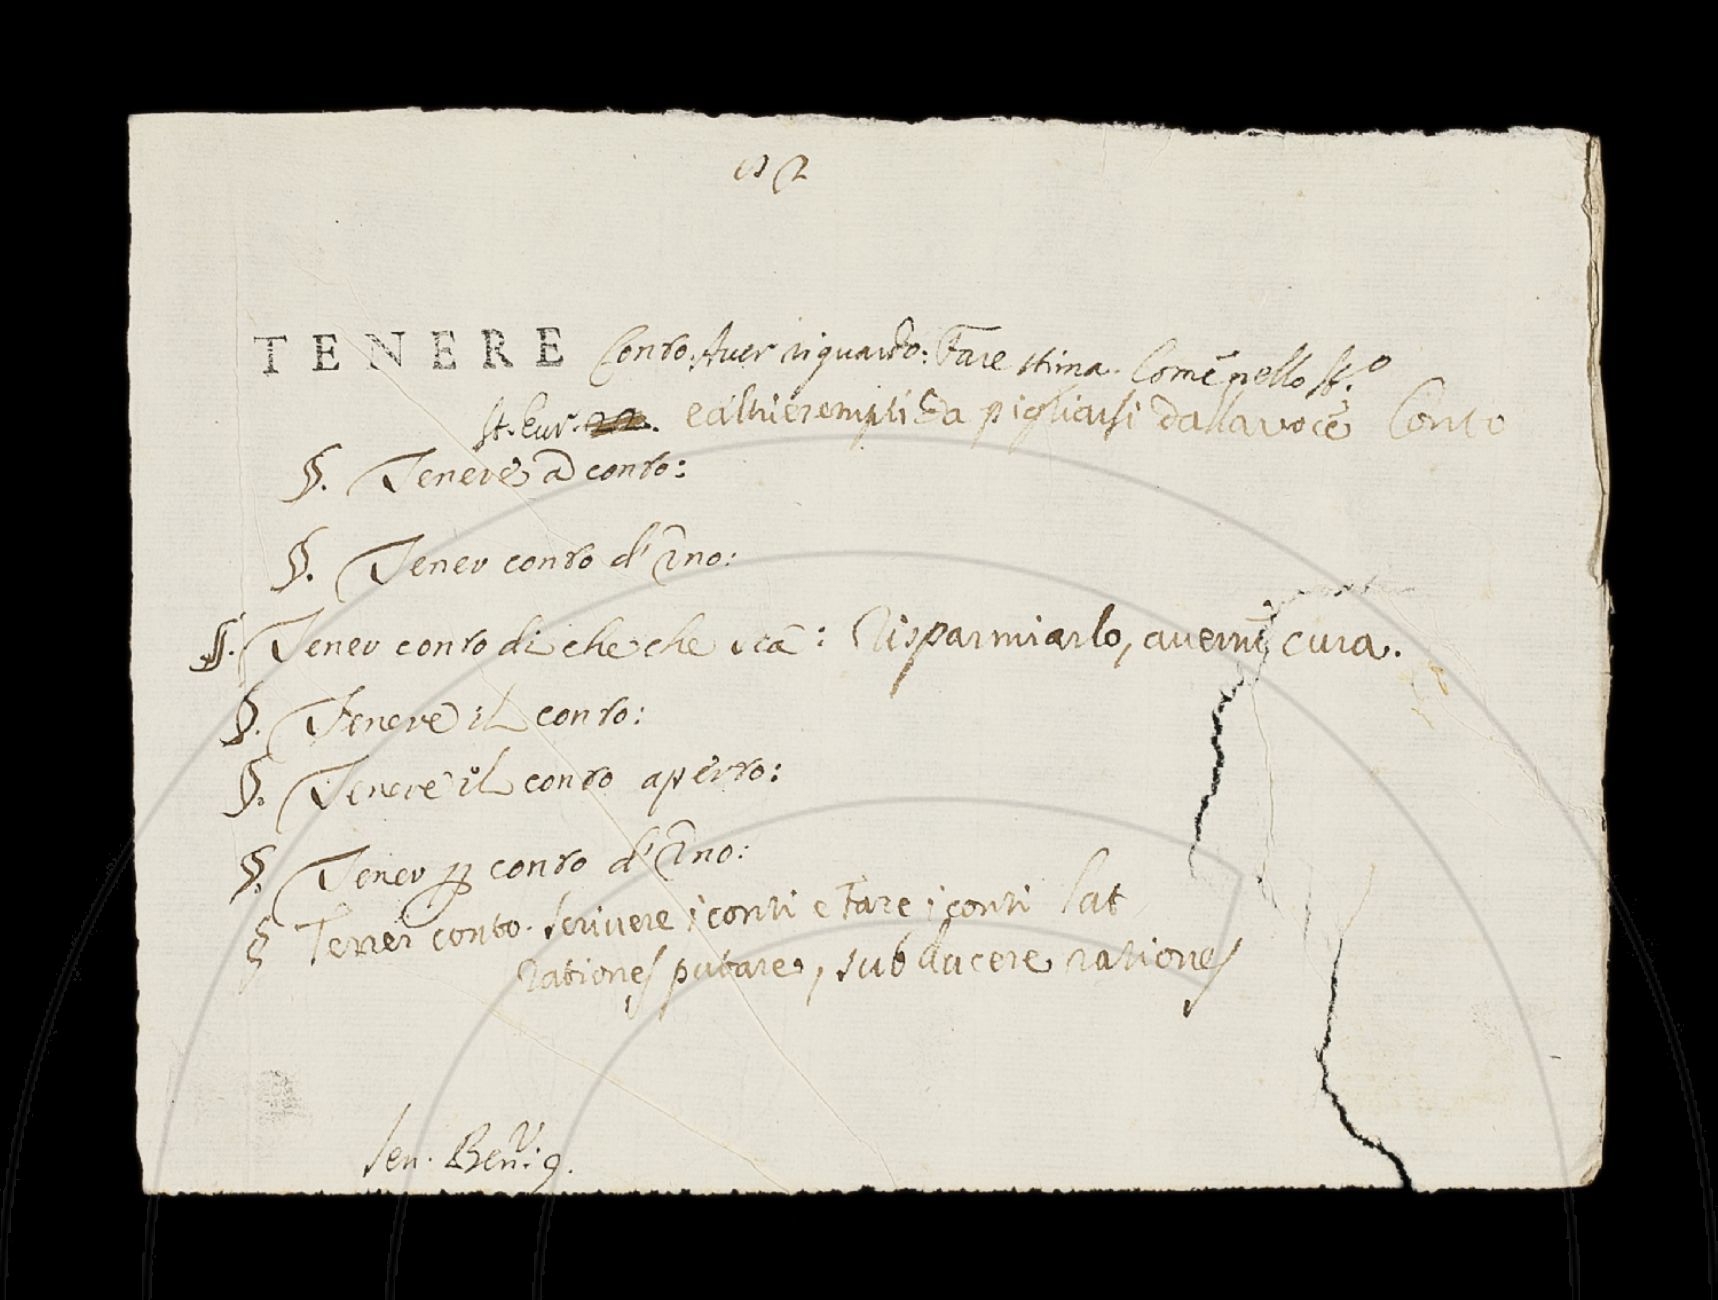 TENERE Conto. Aver riguardo: Fare stima. Come nello
St. Eur. e altri esempli da pigliarsi dalla voce Conto
§. Tenere a conto:
§. Tener conto d'uno:
§. Tener conto di che che sia: Risparmiarlo, averne cura.
§. Tenere il conto:
§. Tenere il conto aperto:
§. Tener p conto d'uno:
§ Tener conto. Scrivere i conti e Fare i conti Lat
rationes putare, subducere rationes
Sen. Ben.